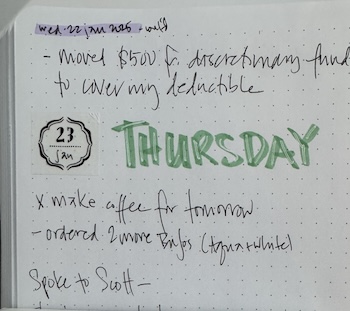 wed. 22 jan 2025
- moved $500 fr. discretionary fund
to cover my deductible
23
jan
THURSDAY
x make coffee for tomorrow
- ordered 2 more (Aqua + White)
Spoke to Scott -